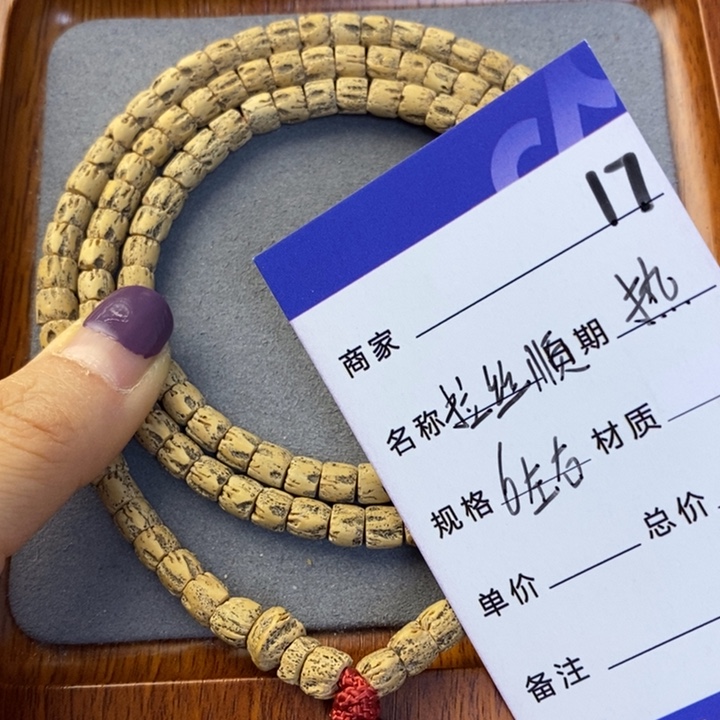 17
商家
名称 拉丝顺 期 执
规格 6左右 材质
单价 总价
备注